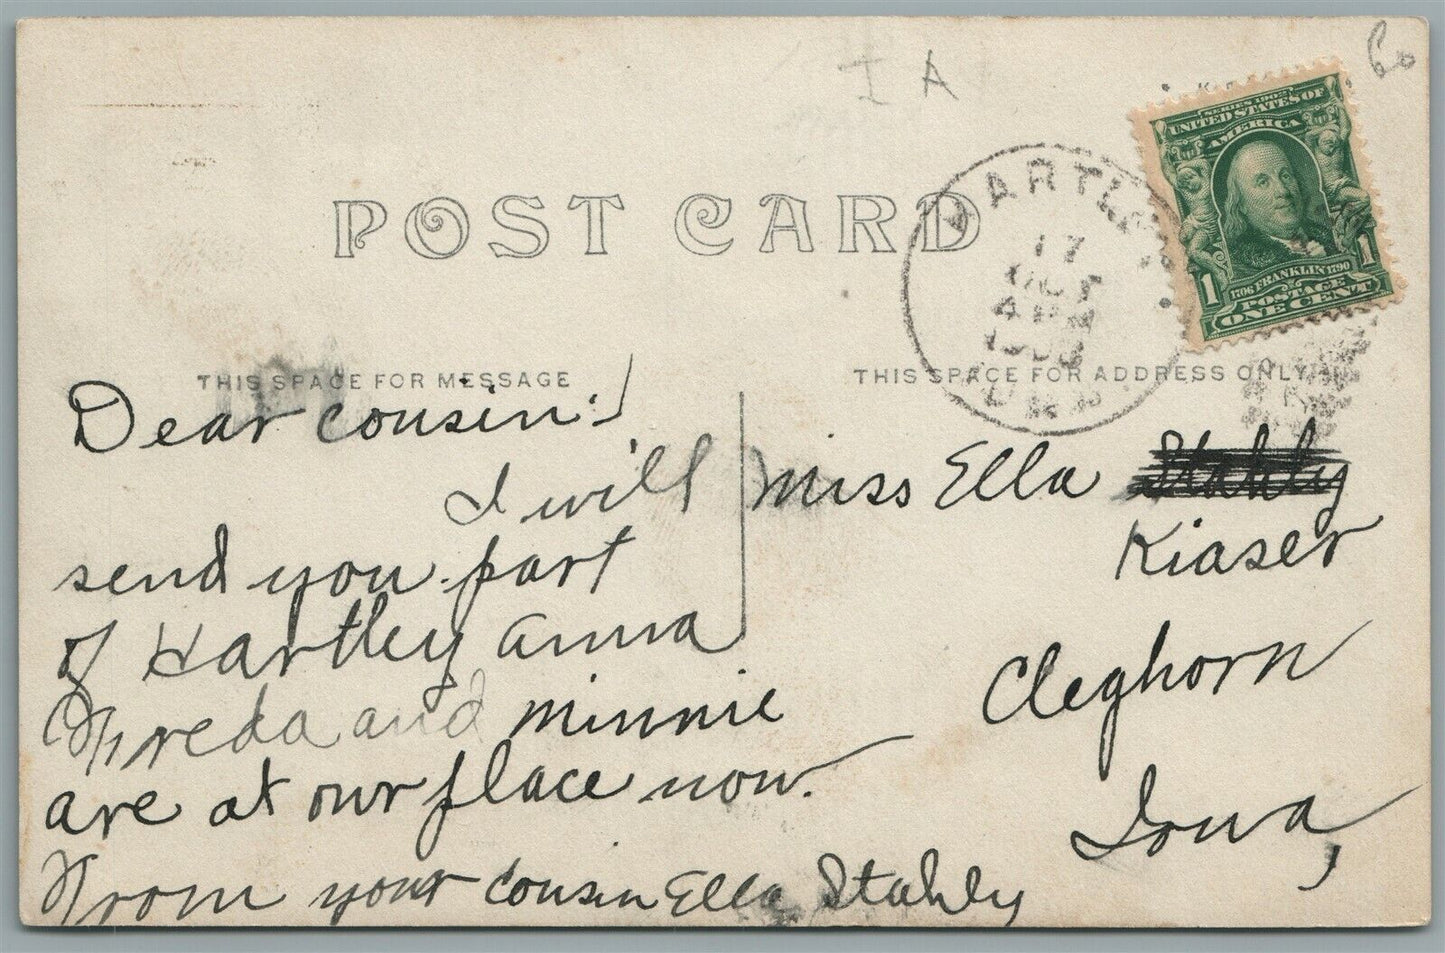 IA
60
POST CARD
HARTLEY
17
OCT
4 PM
SERIES 1902
UNITED STATES OF
AMERICA
1706 FRANKLIN 1790
1 1
POSTAGE
ONE CENT
THIS SPACE FOR MESSAGE
THIS SPACE FOR ADDRESS ONLY
Dear cousin:
I will
send you part
of Hartley Anna
Freda and Minnie
are at our place now.
From your cousin Ella Stahly
Miss Ella Stahly
Kiaser
Cleghorn
Iowa,